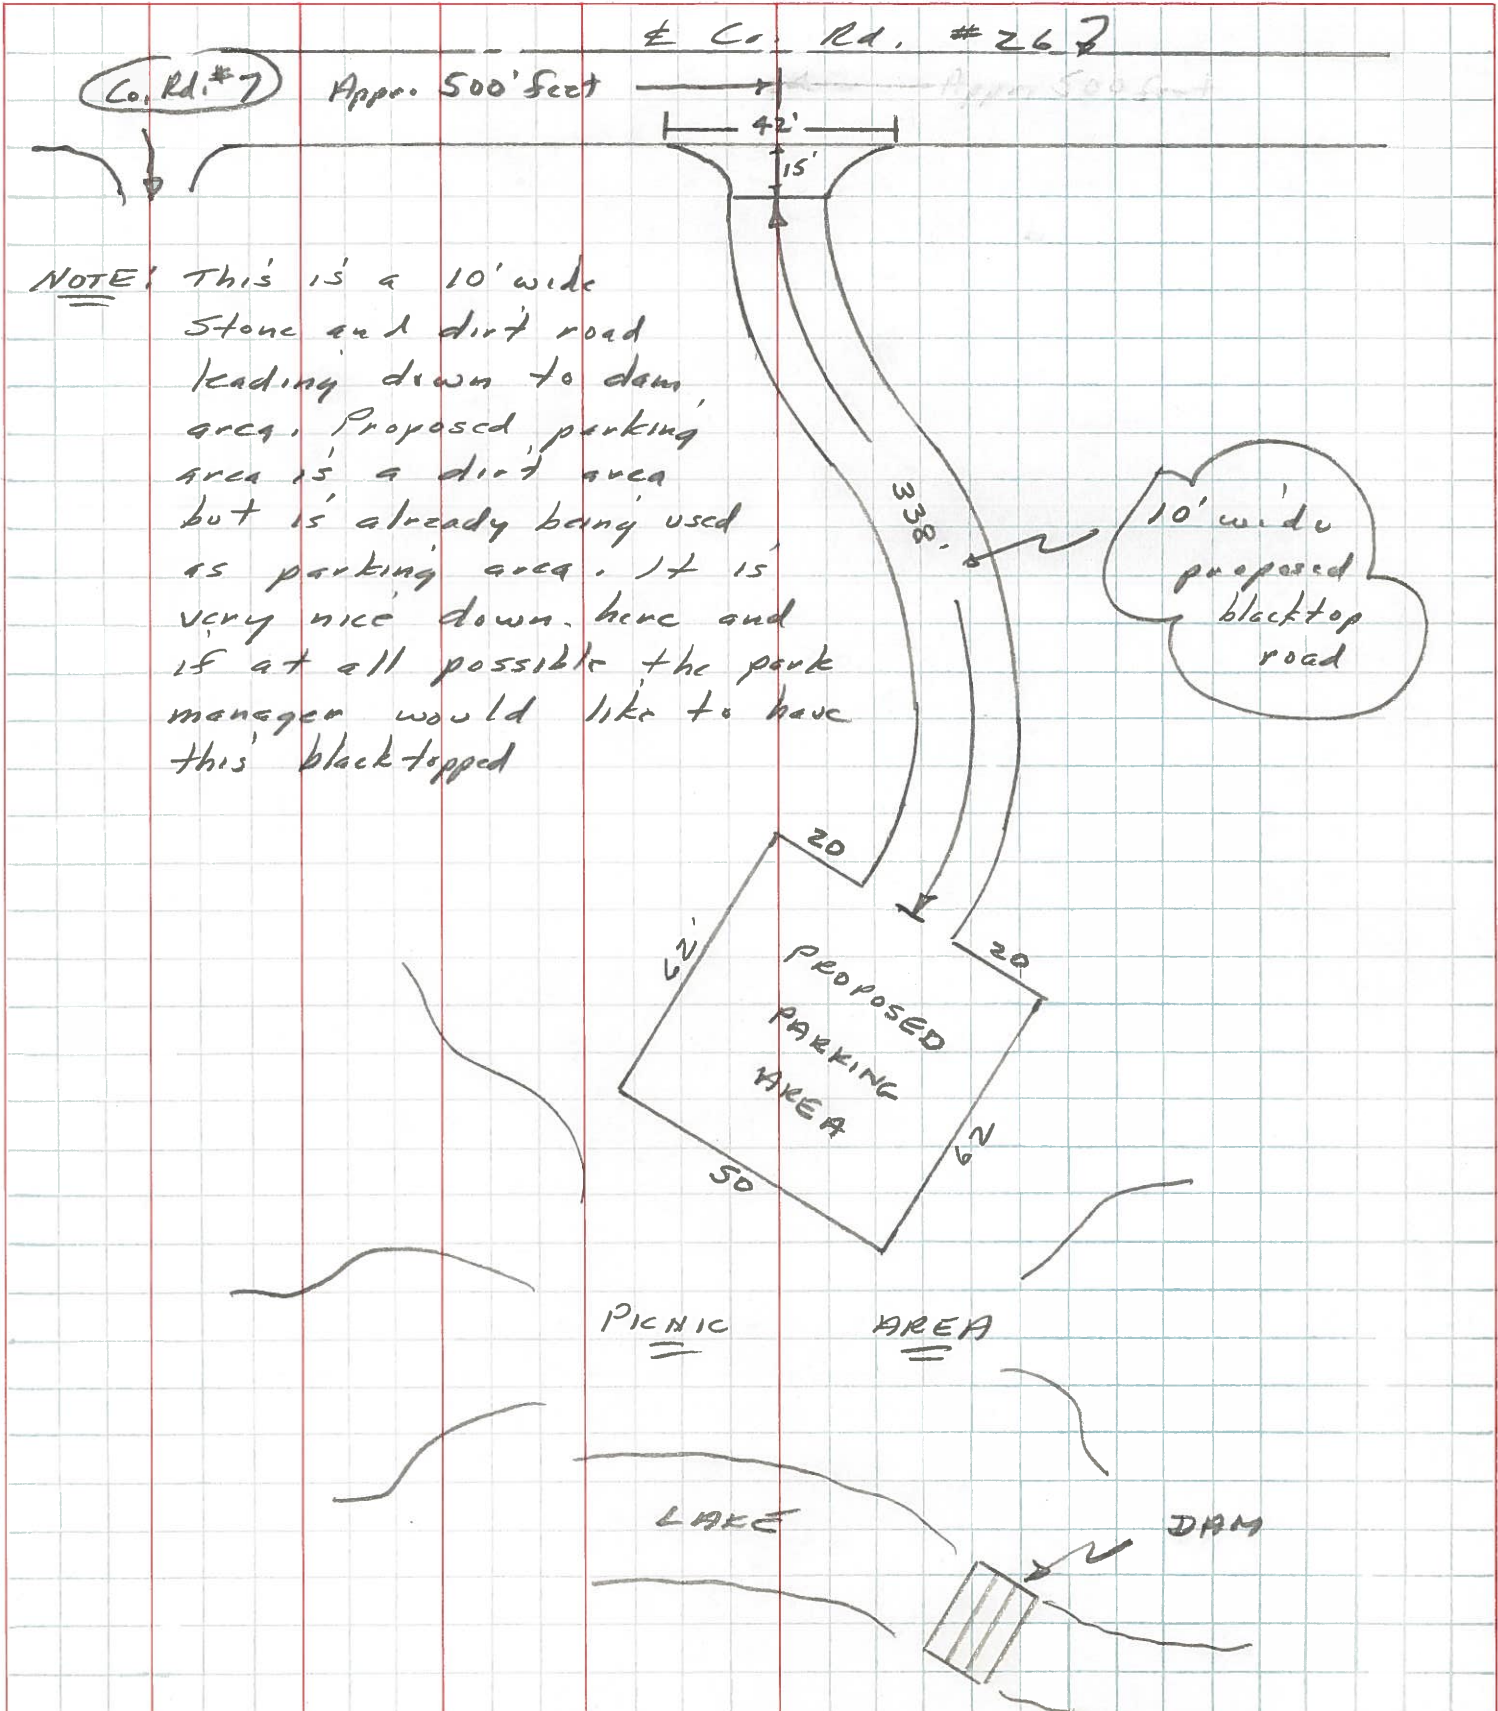 ℄ Co. Rd. #26?
Co. Rd. #7
Appr. 500' feet
Appr. 500 feet
42'
15'
NOTE: This is a 10' wide
Stone and dirt road
leading down to dam
area. Proposed parking
area is a dirt area
but is already being used
as parking area. It is
very nice down here and
if at all possible the park
manager would like to have
this blacktopped
338'
10' wide
proposed
blacktop
road
20
62'
20
PROPOSED
PARKING
AREA
62
50
PICNIC AREA
LAKE
DAM